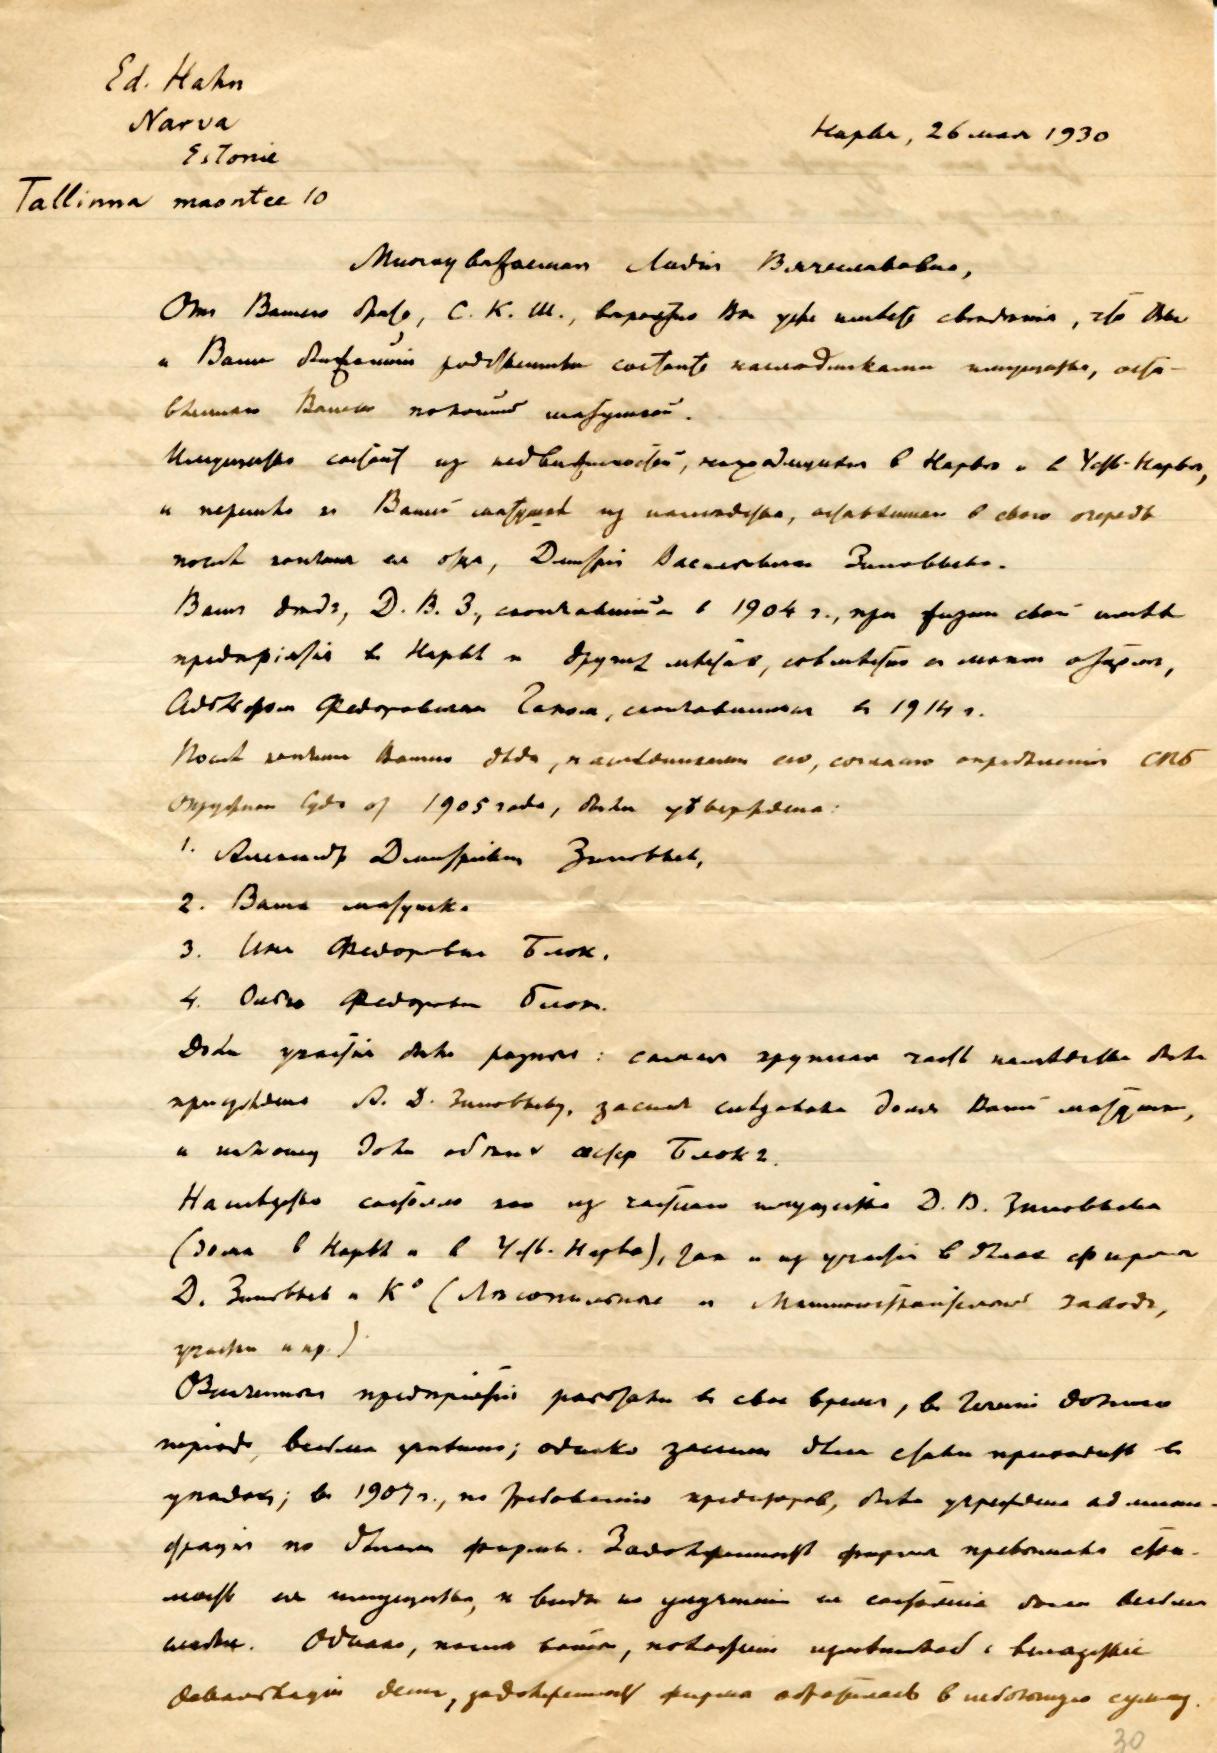 Ed. Hahn
Narva
Estonie
Tallinna maantee 10
Нарва, 26 мая 1930
Многоуважаемая Лидiя Вячеславовна,
От Вашего брата, С. К. Ш., вероятно Вы уже имѣете свѣдѣнiя, что Вы
и Ваши ближайшiе родственники состоите наслѣдниками имущества, оста-
вленнаго Вашей покойной матушкой.
Имущество состоит из недвижимостей, находящихся в Нарвѣ и в Усть-Нарвѣ,
и перешло к Вашей матушкѣ из наслѣдства, оставшагося в свою очередь
послѣ кончины ея отца, Дмитрiя Васильевича Зиновьева.
Ваш дѣд, Д. В. З., скончавшiйся в 1904 г., при жизни своей имѣл
предпрiятiя в Нарвѣ и других мѣстах, совмѣстно с моим отцом,
Адольфом Федоровичем Ганом, скончавшимся в 1914 г.
Послѣ кончины Вашего дѣда, наслѣдниками его, согласно опредѣленiя СПБ
Окружного Суда от 1905 года, были утверждены:
1. Александр Дмитрiевич Зиновьев,
2. Ваша матушка
3. Федоровна Блок.
4. Ольга Федоровна Блок.
Доли участiя были разныя: самая крупная часть наслѣдства была
присуждена А. Д. Зиновьеву, засим слѣдовала доля Вашей матушки,
и наконец доли обѣих сестер Блок.
Наслѣдство состояло как из частнаго имущества Д. В. Зиновьева
(дома в Нарвѣ и в Усть-Нарвѣ), так и из участiя в дѣлах фирмы
Д. Зиновьев и К° (Лѣсопильные и Машиностроительный завод,
участки и пр.)
Означенныя предпрiятiя работали в свое время, в теченiи долгаго
перiода, весьма успѣшно; однако засим дѣла стали приходить в
упадок; в 1907 г., по требованiю кредиторов, была учреждена админи-
страцiя по дѣлам фирмы. Задолженность фирмы превышала стои-
мость ея имущества, и виды на улучшенiе ея состоянiя были весьма
Однако, послѣ войны,
девальвацiи денег, задолженность фирмы обратилась в небольшую сумму.
30